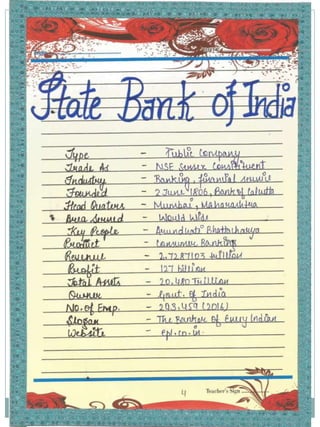 State Bank of India
Type - Public Company
Trade As - NSE Sensex Constituent
Industry - Banking, financial service
Founded - 2 June 1806, Bank of Calcutta
Head Quaters - Mumbai, Maharashtra
Area Served - Would Wide
Key People - Arundhati Bhattacharya
Product - Consumer Banking
Revenue - 2.7287103 million
Profit - 127 billion
Total Assets - 20,480 Trillion
Owner - Govt. of India
No. of Emp. - 293,459 (2016)
Slogan - The Banker Of Every Indian
Website - .co.in
4 Teacher's Sign